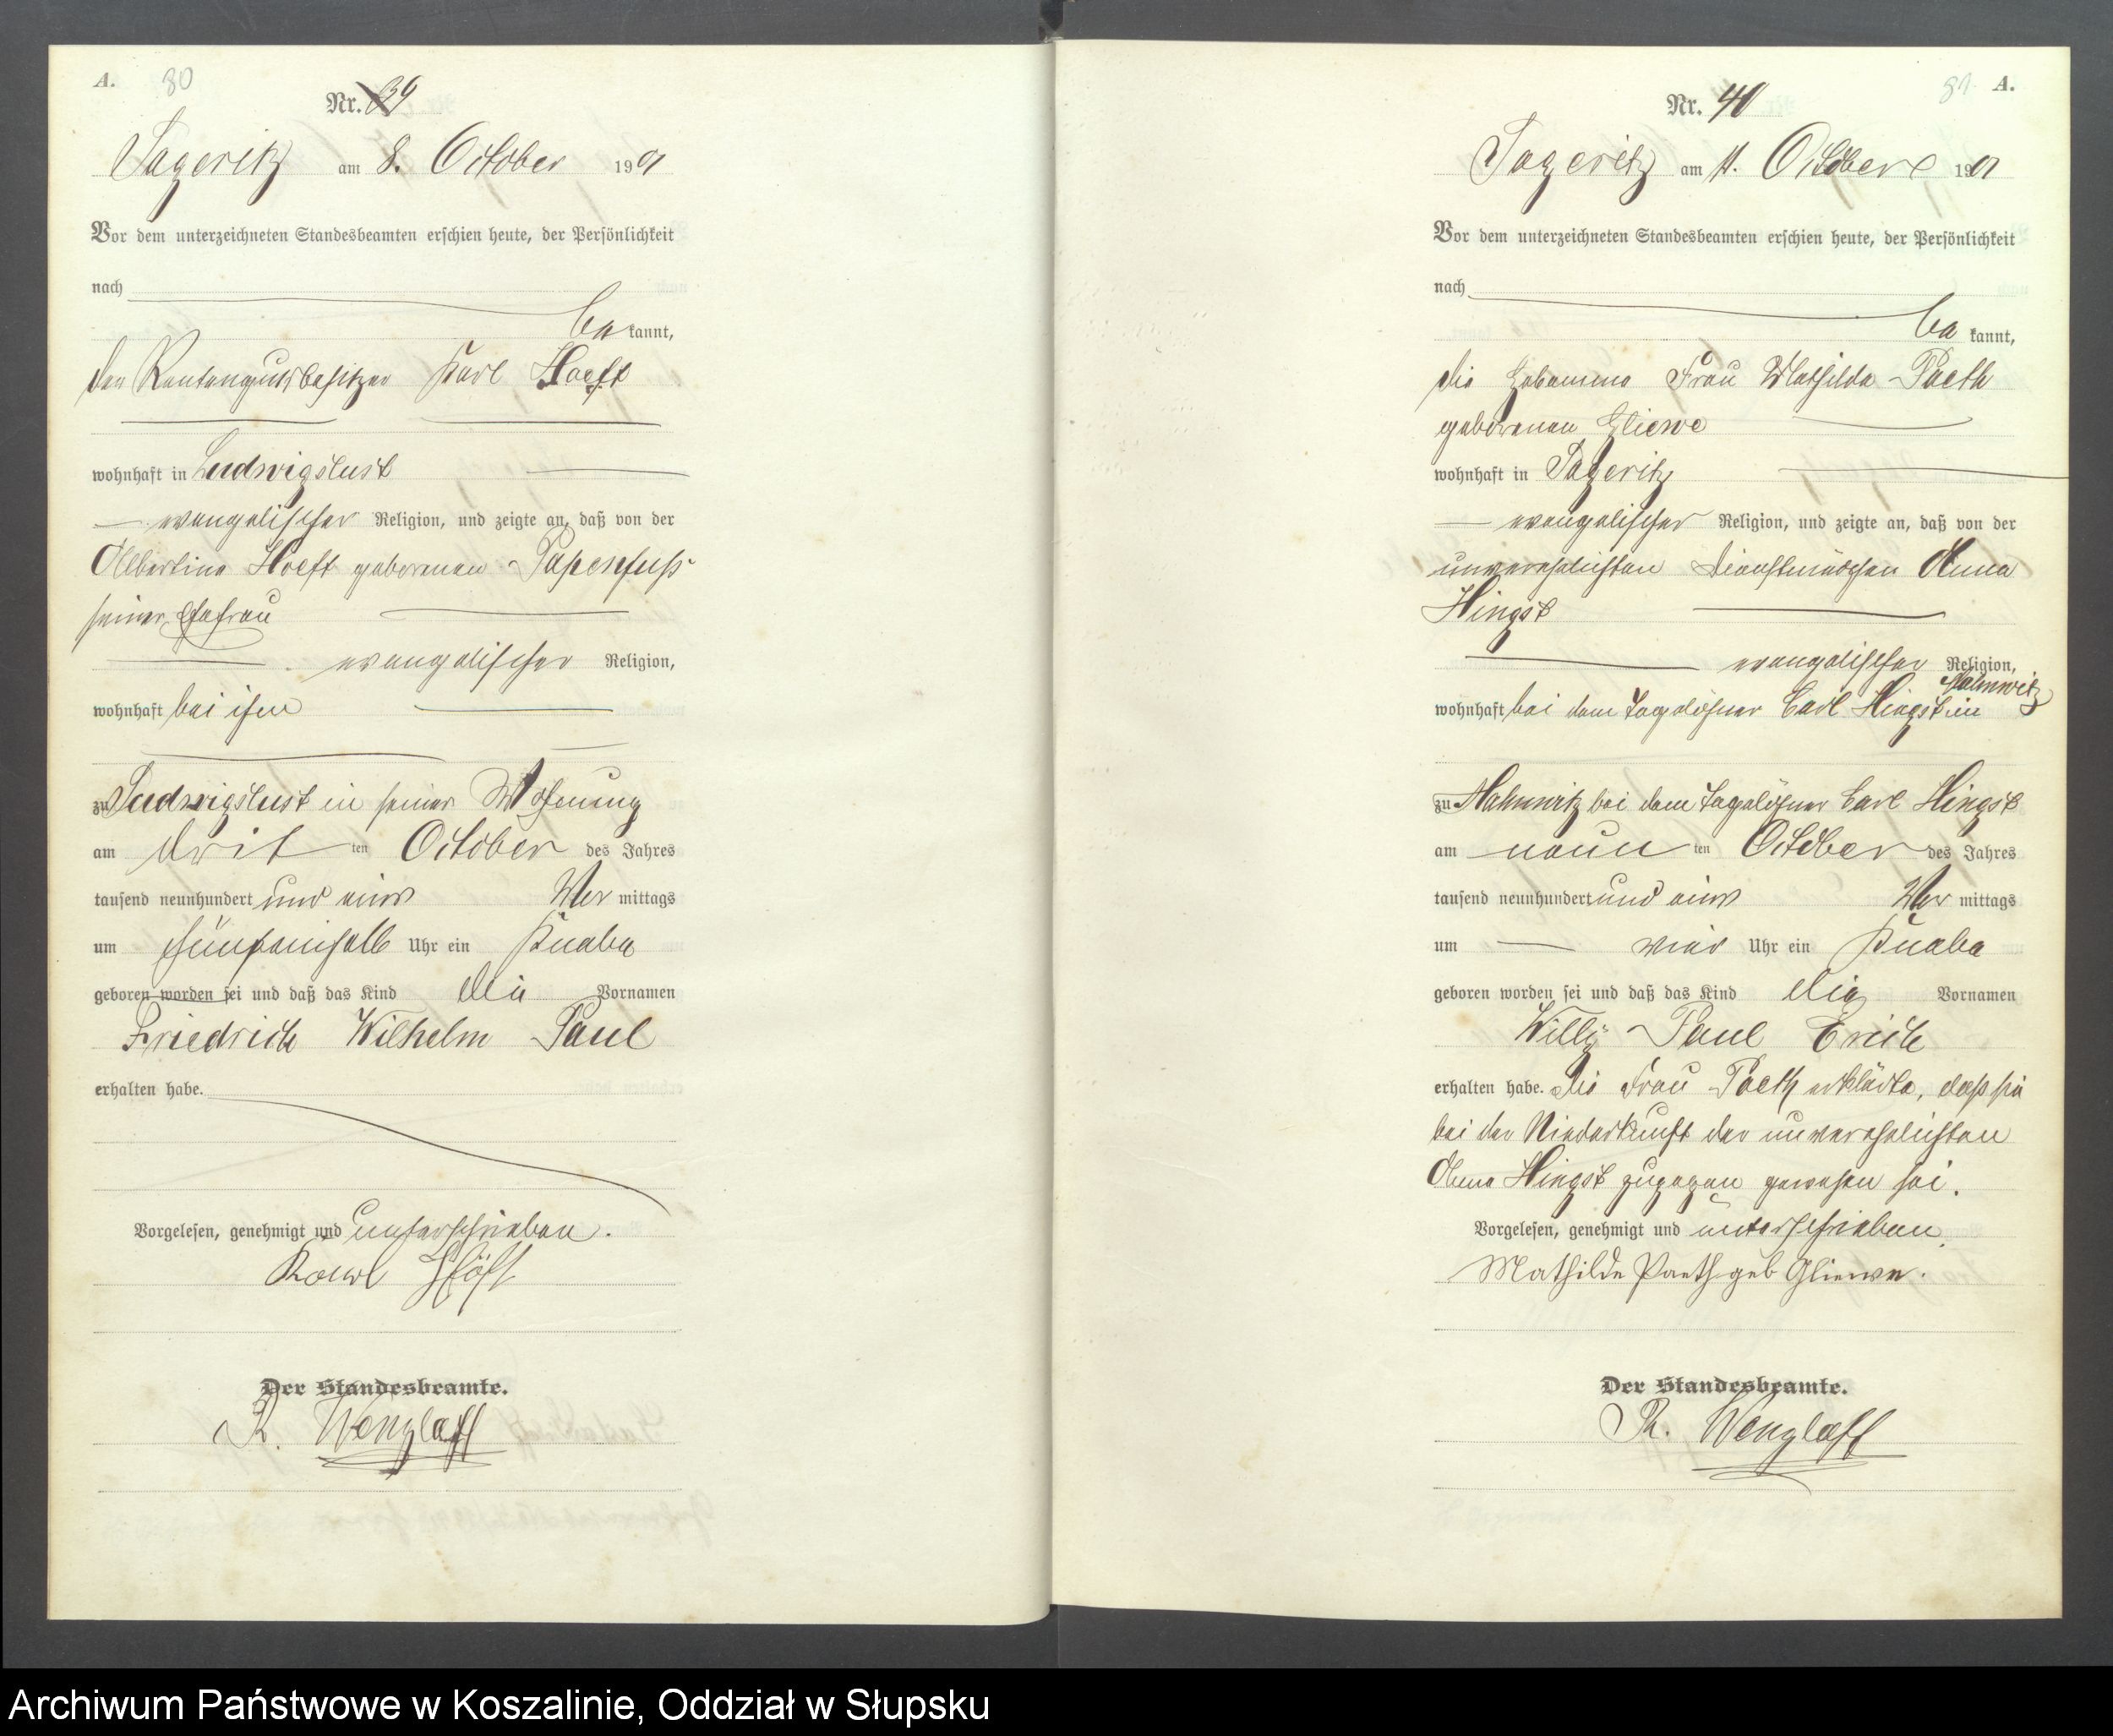 A. 80
Nr. 39
Zageritz am 8. October 1901
Vor dem unterzeichneten Standesbeamten erschien heute, der Persönlichkeit
nach
be kannt,
der Rentengutsbesitzer Karl Hoeft
wohnhaft in Ludwigslust
evangelischer Religion, und zeigte an, daß von der
Albertine Hoeft geborenen Papenfuß
seiner Ehefrau
evangelischer Religion,
wohnhaft bei ihm
zu Ludwigslust in seiner Wohnung
am drit ten October des Jahres
tausend neunhundert und eins Vor mittags
um fünfeinhalb Uhr ein Knabe
geboren worden sei und daß das Kind die Vornamen
Friedrich Wilhelm Paul
erhalten habe.
Vorgelesen, genehmigt und unterschrieben.
Karl Höft
Der Standesbeamte.
R. Wenzlaff
81 A.
Nr. 40
Zageritz am 11. October 1901
Vor dem unterzeichneten Standesbeamten erschien heute, der Persönlichkeit
nach
be kannt,
die Hebamme Frau Mathilde Paeth
geborenen Gliewe
wohnhaft in Zageritz
evangelischer Religion, und zeigte an, daß von der
unverehelichten Dienstmädchen Anna
Hingst
evangelischer Religion,
wohnhaft bei dem Tagelöhner Carl Hingst in Mahnwitz
zu Mahnwitz bei dem Tagelöhner Carl Hingst
am neun ten October des Jahres
tausend neunhundert und eins Vor mittags
um vier Uhr ein Knabe
geboren worden sei und daß das Kind die Vornamen
Willy Paul Erich
erhalten habe. Die Frau Paeth erklärte, daß sie
bei der Niederkunft der unverehelichten
Anna Hingst zugegen gewesen sei.
Vorgelesen, genehmigt und unterschrieben.
Mathilde Paeth geb Gliewe.
Der Standesbeamte.
R. Wenzlaff
Archiwum Państwowe w Koszalinie, Oddział w Słupsku